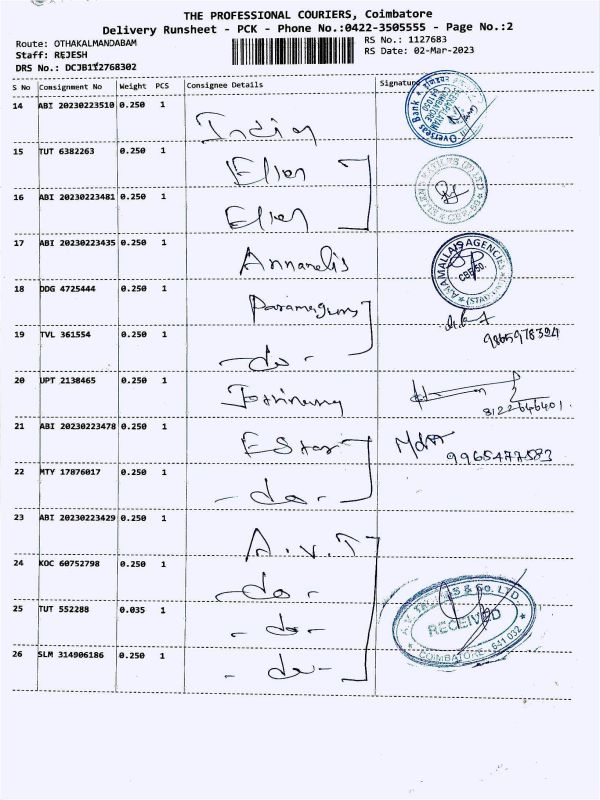 THE PROFESSIONAL COURIERS, Coimbatore
Delivery Runsheet - PCK - Phone No.:0422-3505555 - Page No.:2
Route: OTHAKALMANDABAM RS No.: 1127683
Staff: REJESH RS Date: 02-Mar-2023
DRS No.: DCJB112768302
S No Consignment No Weight PCS Consignee Details Signature
14 ABI 20230223510 0.250 1 India Overseas Bank
15 TUT 6382263 0.250 1 Elien
16 ABI 20230223481 0.250 1 Elien
17 ABI 20230223435 0.250 1 Annamalis ANAMALLAIS AGENCIES CBE-50.
18 DDG 4725444 0.250 1
19 TVL 361554 0.250 1 - do - 9865978324
20 UPT 2138465 0.250 1 8122646401.
21 ABI 20230223478 0.250 1 E Star 9965477583
22 MTY 17876017 0.250 1 - do -
23 ABI 20230223429 0.250 1 A.V.T
24 KOC 60752798 0.250 1 - do -
25 TUT 552288 0.035 1 - do - RECEIVED COIMBATORE - 641 032
26 SLM 314906186 0.250 1 - do -